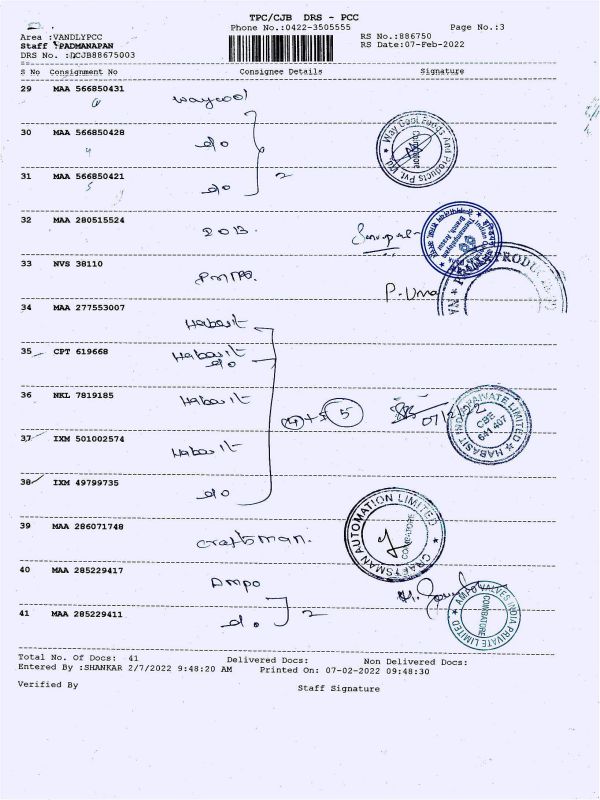 TPC/CJB DRS - PCC
Phone No.:0422-3505555 Page No.:3
Area :VANDLYPCC RS No.:886750
Staff :PADMANAPAN RS Date:07-Feb-2022
DRS No. :DCJB88675003
S No Consignment No Consignee Details Signature
29 MAA 566850431 Waycool
30 MAA 566850428 do
Way Cool Foods And Products Pvt. Ltd. Coimbatore
31 MAA 566850421 do 2
32 MAA 280515524 IOB
33 NVS 38110 P. Uma
34 MAA 277553007 Habasit
35 CPT 619668 Habasit
do
36 NKL 7819185 Habasit 5 07/2/22
HABASIT PRIVATE LIMITED CBE 641 407
37 IXM 501002574 Habasit
38 IXM 49799735 do
39 MAA 286071748 Craftsman.
CRAFTSMAN AUTOMATION LIMITED COIMBATORE
40 MAA 285229417 Ampo
41 MAA 285229411 do. 2
AMPO VALVES INDIA PRIVATE LIMITED COIMBATORE
Total No. Of Docs: 41 Delivered Docs: Non Delivered Docs:
Entered By :SHANKAR 2/7/2022 9:48:20 AM Printed On: 07-02-2022 09:48:30
Verified By Staff Signature